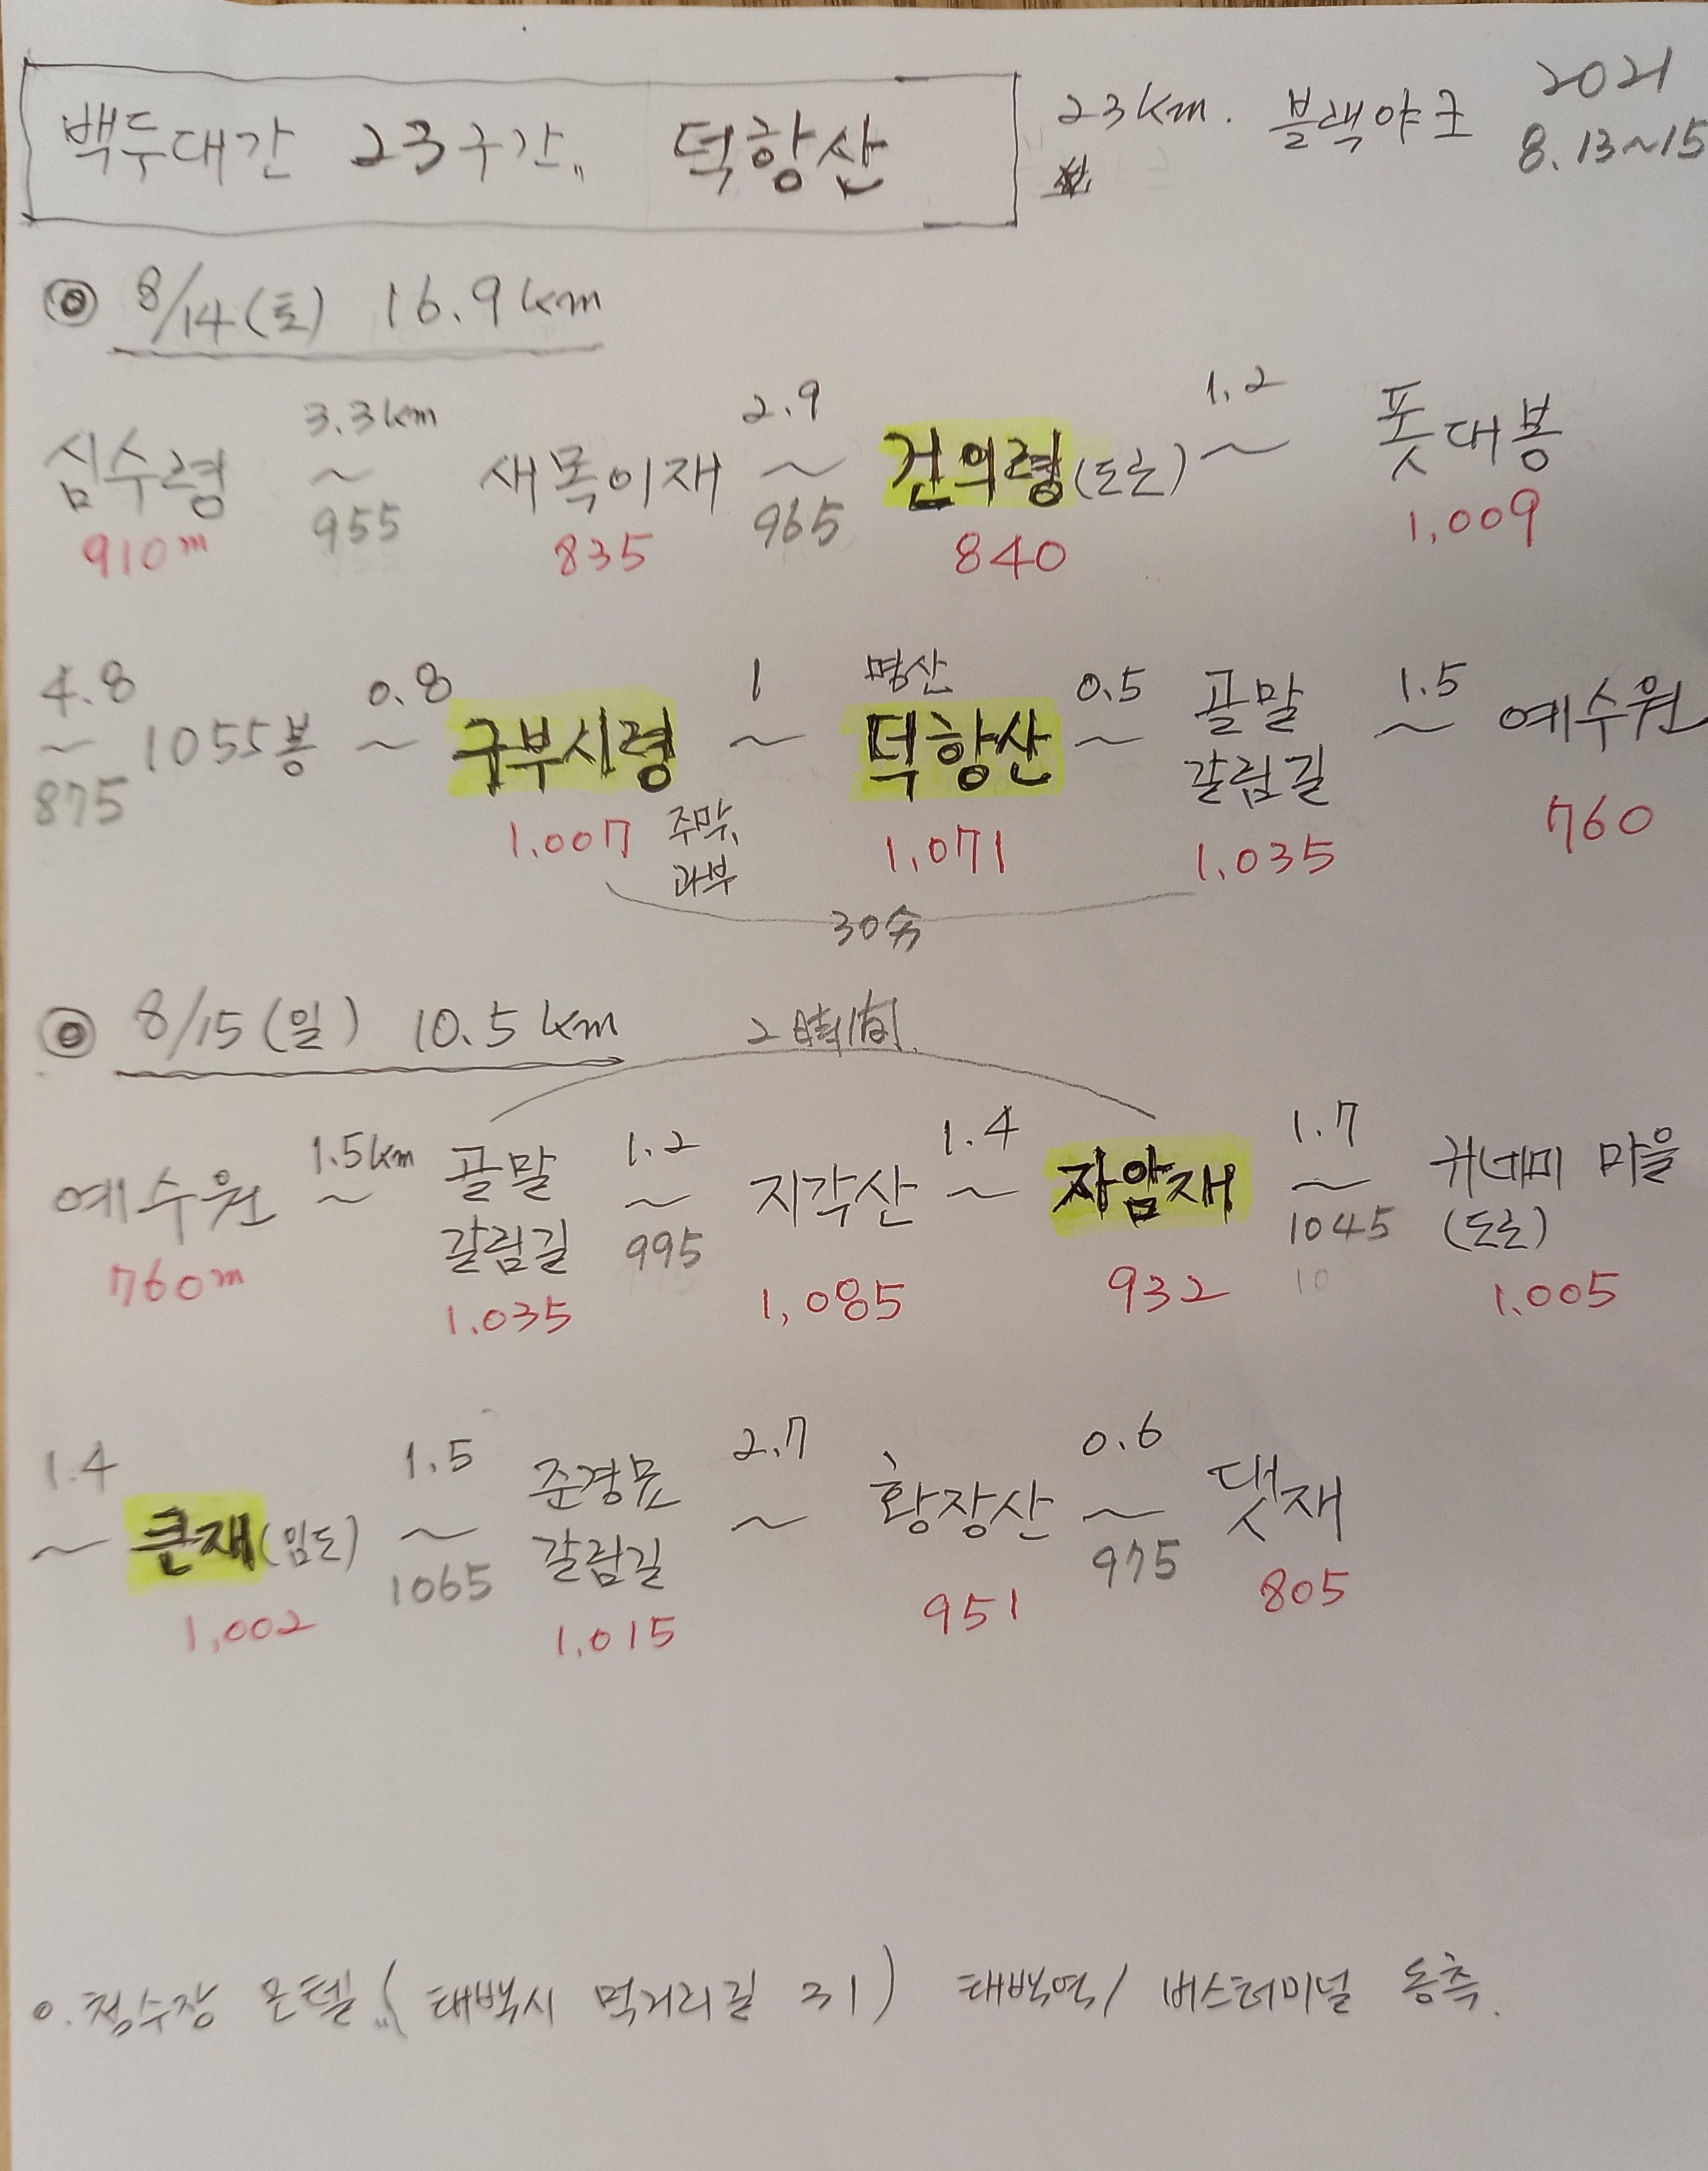 백두대간 23구간, 덕항산 23km. 블랙야크 2021
8. 13~15
◎ 8/14 (토) 16.9km
3.3km 2.9 1.2
심수령 ~ 새목이재 ~ 건의령 (도로) ~ 푯대봉
910m 955 835 965 840 1,009
4.8 0.8 1 명산 0.5 골말 1.5
~ 1055봉 ~ 구부시령 ~ 덕항산 ~ 갈림길 ~ 예수원
875 1.007 주막, 1,071 1.035 760
과부
30分
◎ 8/15 (일) 10.5km 2時間
1.5km 골말 1.2 1.4 1.7
예수원 ~ 갈림길 ~ 지각산 ~ 자암재 ~ 귀네미 마을
760m 1.035 995 1,085 932 1045 (도로)
10 1.005
1.4 1.5 준경묘 2.7 0.6
~ 큰재 (임도) ~ 갈림길 ~ 황장산 ~ 댓재
1,002 1065 1.015 951 975 805
○. 청수장 모텔 (태백시 먹거리길 31) 태백역/ 버스터미널 동측.